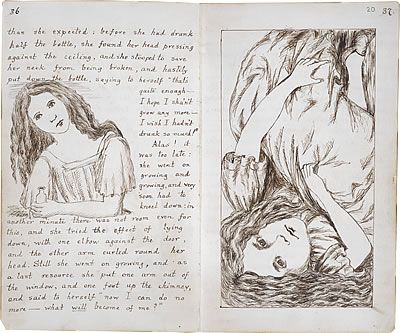 36
than she expected: before she had drunk
half the bottle, she found her head pressing
against the ceiling, and she stooped to save
her neck from being broken, and hastily
put down the bottle, saying to herself "that's
quite enough—
I hope I shan't
grow any more—
I wish I hadn't
drunk so much!"
Alas! it
was too late:
she went on
growing and
growing, and very
soon had to
kneel down: in
another minute there was not room even for
this, and she tried the effect of lying
down, with one elbow against the door,
and the other arm curled round her
head. Still she went on growing, and as
a last resource she put one arm out of
the window, and one foot up the chimney,
and said to herself "now I can do no
more— what will become of me?"
20
37.